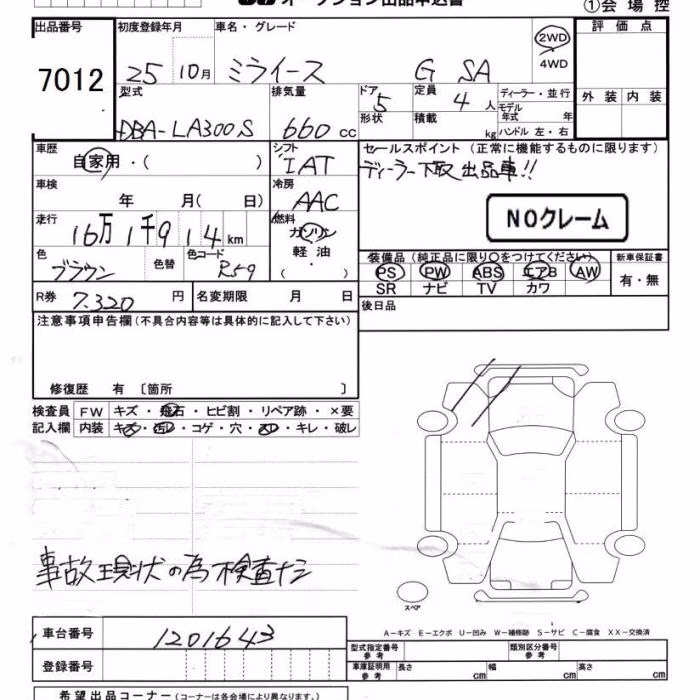 オークション出品申込書
①会場控
出品番号 7012
初度登録年月 25 10月
車名・グレード ミライース G SA
2WD
4WD
評価点
外装 内装
型式 DBA-LA300S
排気量 660 cc
ドア 5
形状
定員 4 人
積載 kg
ディーラー・並行
モデル年式 年
ハンドル 左・右
車歴 自家用・( )
シフト IAT
セールスポイント (正常に機能するものに限ります)
ディーラー下取出品車!!
NOクレーム
車検 年 月( 日)
冷房 AAC
走行 16万1千914km
燃料 ガソリン
軽油
( ・ )
色 ブラウン
色替
色コード R59
装備品 (純正品に限り○をつけてください)
PS PW ABS エアB AW
SR ナビ TV カワ
新車保証書
有・無
R券 7.320 円
名変期限 月 日
後日品
注意事項申告欄(不具合内容等は具体的に記入して下さい)
修復歴 有 〔箇所 〕
検査員 FW キズ・飛石・ヒビ割・リペア跡・×要
記入欄 内装 キズ・汚レ・コゲ・穴・スレ・キレ・破レ
事故現状の為検査ナシ
スペア
A-キズ E-エクボ U-凹み W-補修跡 S-サビ C-腐食 XX-交換済
車台番号 1201643
登録番号
型式指定番号 参考
類別区分番号 参考
車庫証明用 参考 長さ cm 幅 cm 高さ cm
希望出品コーナー(コーナーは各会場により異なります。)